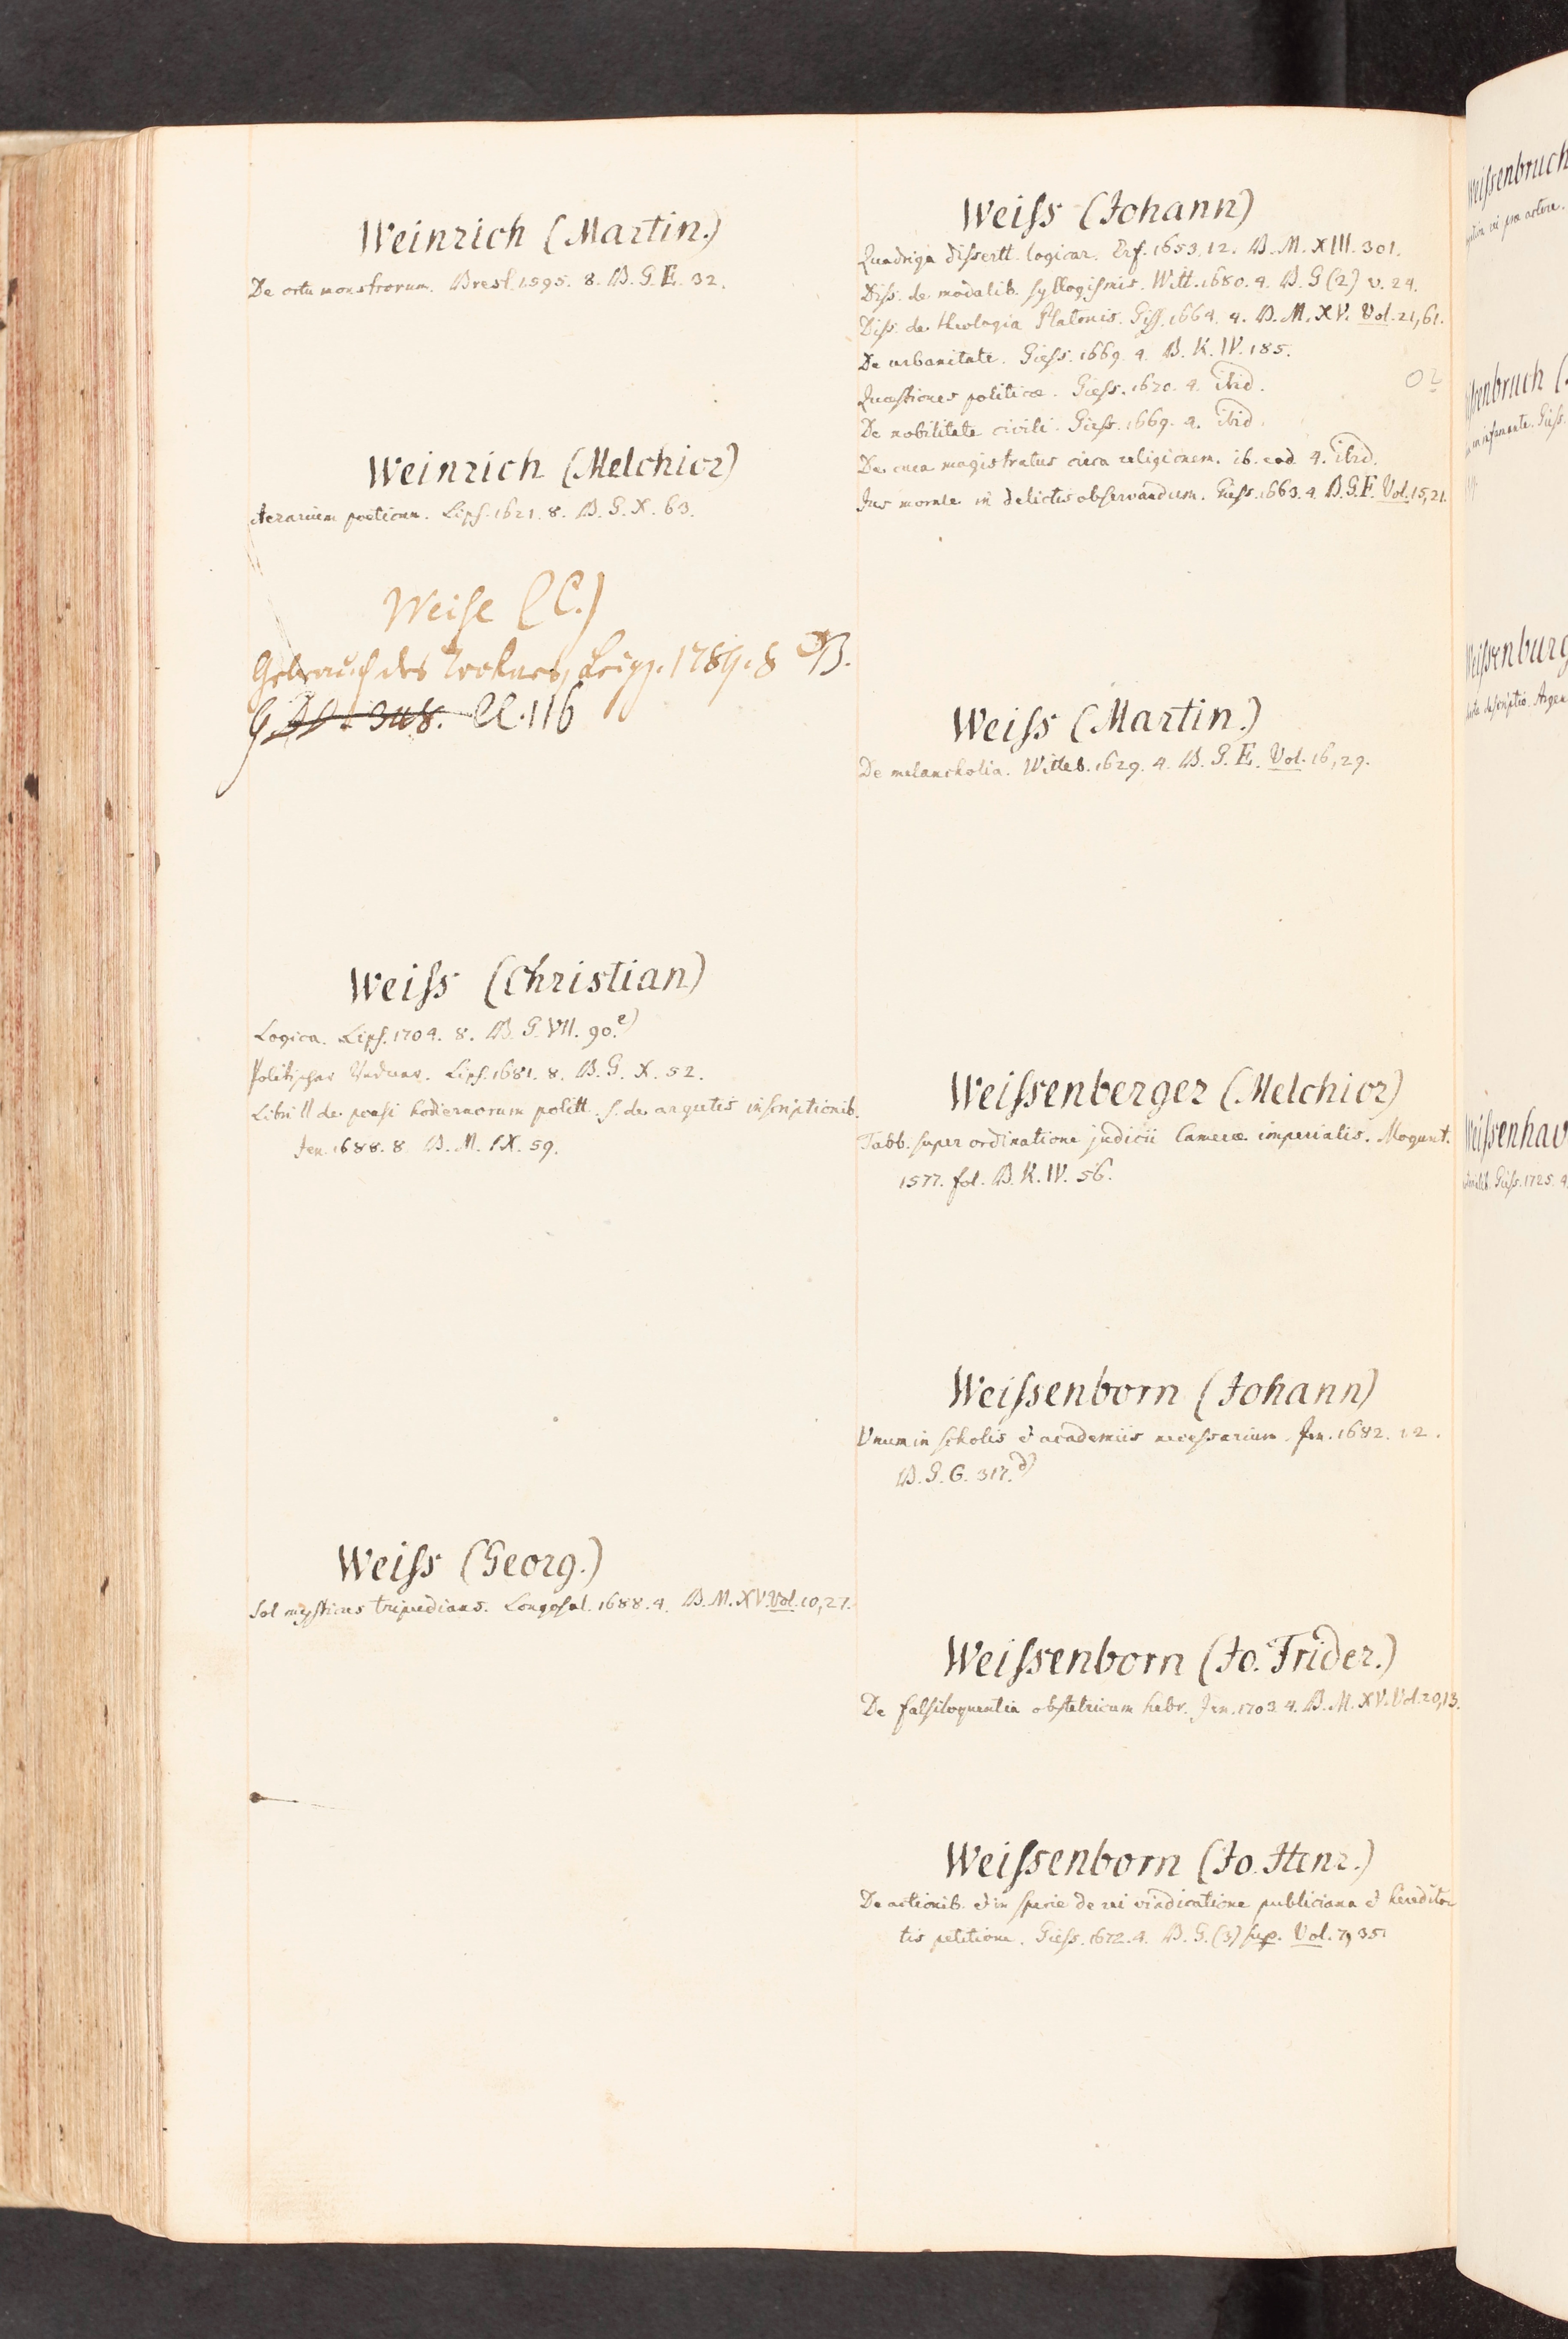 Weinrich (Martin.)
De ortu monstrorum. Bresl. 1595. 8. B. G. E. 32.
Weinrich (Melchior)
Aerarium poeticum. Lips. 1621. 8. B. G. X. 63.
Weise (C.)
Gebrauch des Leipz. 1789. 8 B.
G 348. 116
Weiſs (Christian)
Logica. Lipſ. 1704. 8. B. G. VII. 90. e)
Politischer Redner. Lipſ. 1681. 8. B. G. X. 52.
Libri II de poesi hodiernorum politt. ſ. de argutis inscriptionib.
Jen. 1688. 8. B. M. IX. 59.
Weiſs (Georg.)
Sol mysticus tripudians. Longosal. 1688. 4. B. M. XV. Vol. 10, 27.
Weiſs (Johann)
Quadriga dissertt. logicar. Erf. 1653. 12. B. M. XIII. 301.
Diſs. de modalib. syllogismis. Witt. 1680. 4. B. G (2) v. 24.
Diſs. de theologia Platonis. Giſſ. 1664. 4. B. M. XV. Vol. 21, 61.
De urbanitate. Gieſs. 1669. 4. B. K. IV. 185.
Quæstiones politicæ. Gieſs. 1670. 4. ibid.
De nobilitate civili. Gieſs. 1669. 4. ibid.
De cura magistratus circa religionem. ib. eod. 4. ibid.
Jus morale in delictis observandum. Gieſs. 1663. 4. B. G. F. Vol. 15, 21.
Weiſs (Martin.)
De melancholia. Witteb. 1629. 4. B. G. E. Vol. 16, 29.
Weiſsenberger (Melchior)
Tabb. super ordinatione judicii Cameræ imperialis. Mogunt.
1577. fol. B. K. IV. 56.
Weiſsenborn (Johann)
Unum in scholis & academiis necessarium. Jen. 1682. 12.
B. G. G. 317. d)
Weiſsenborn (Jo. Frider.)
De falsiloquentia obstetricum hebr. Jen. 1703. 4. B. M. XV. Vol. 20, 13.
Weiſsenborn (Jo. Henr.)
De actionib. & in specie de rei vindicatione publiciana & heredita
tis petitione. Gieſs. 1672. 4. B. G. (3) sup. Vol. 7, 35.
Weiſsenbruch
Weiſsenburg
Weiſsenhav